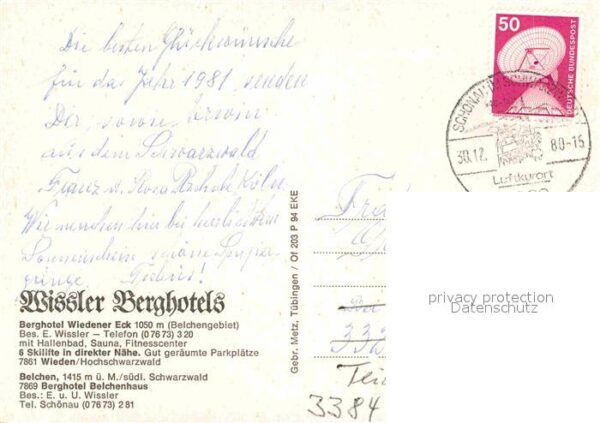 Die besten Glückwünsche
für das Jahr 1981, senden
Dir, sowie
aus dem Schwarzwald
Franz u. Rosa Köln
Wir machen hier bei herrlichem
Sonnenschein schöne Spazier
gänge.
Wissler Berghotels
Berghotel Wiedener Eck 1050 m (Belchengebiet)
Bes. E. Wissler – Telefon (0 76 73) 3 20
mit Hallenbad, Sauna, Fitnesscenter
6 Skilifte in direkter Nähe. Gut geräumte Parkplätze
7861 Wieden/Hochschwarzwald
Belchen, 1415 m ü. M./südl. Schwarzwald
7869 Berghotel Belchenhaus
Bes.: E. u. U. Wissler
Tel. Schönau (0 76 73) 2 81
Gebr. Metz, Tübingen / Of 203 P 94 EKE
50
DEUTSCHE BUNDESPOST
30.12. 80-15
Luftkurort
privacy protection
Datenschutz
3384